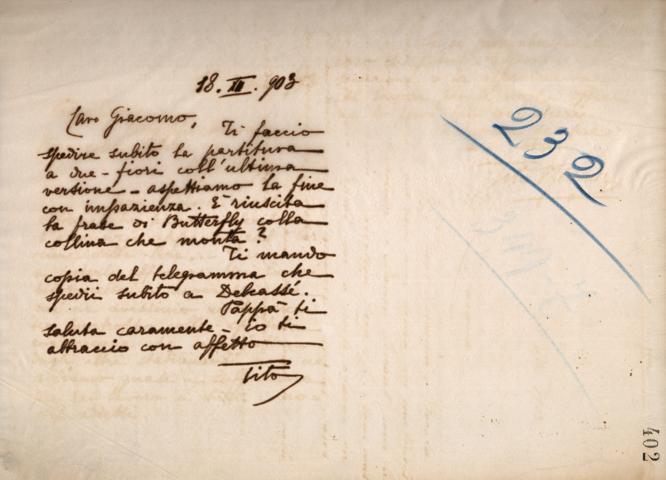 18. XII. 903
Caro Giacomo,
Ti faccio
spedire subito la partitura
a due-fiori coll'ultima
versione - aspettiamo la fine
con impazienza. È riuscita
la frase di Butterfly colla
collina che monta?
Ti mando
copia del telegramma che
spedii subito a Delcassé.
Pappà ti
saluta caramente - io ti
abbraccio con affetto
Tito
232
402